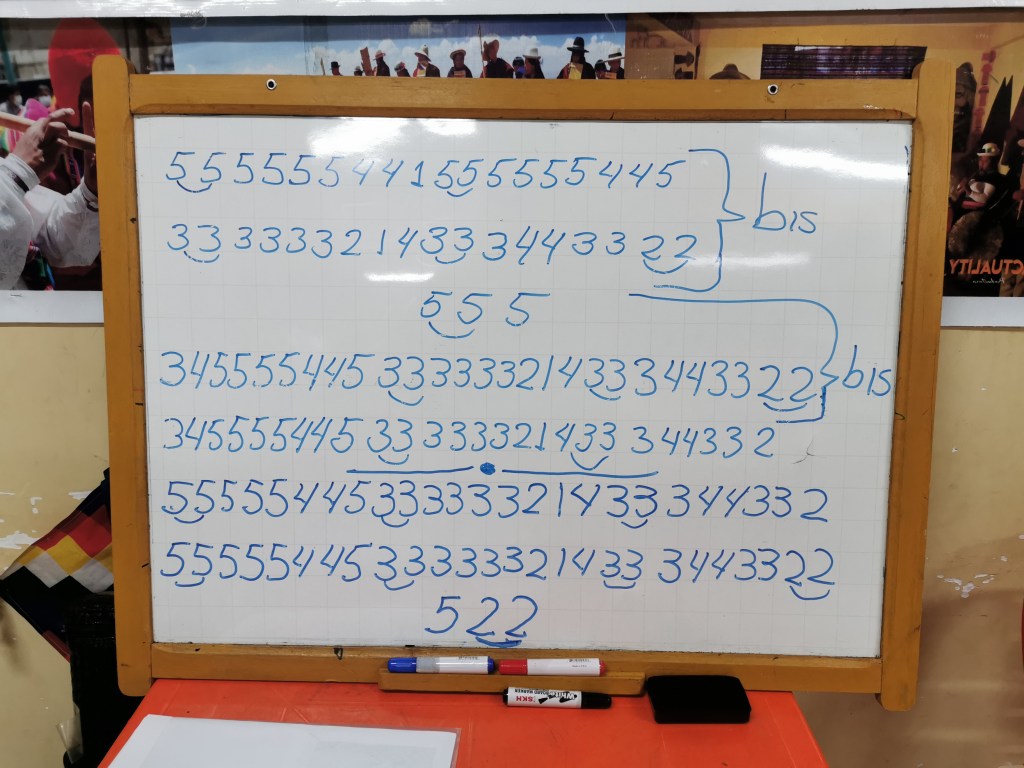 5 5 5 5 5 5 4 4 1 5 5 5 5 5 5 4 4 5
3 3 3 3 3 3 2 1 4 3 3 3 4 4 3 3 2 2
bis
5 5 5
345555445 33 3333214 33 3443322
bis
345555445 33 3333214 33 344332
55555445 33 3333214 33 344332
55555445 33 3333214 33 3443322
522
CTUALITY
SKH